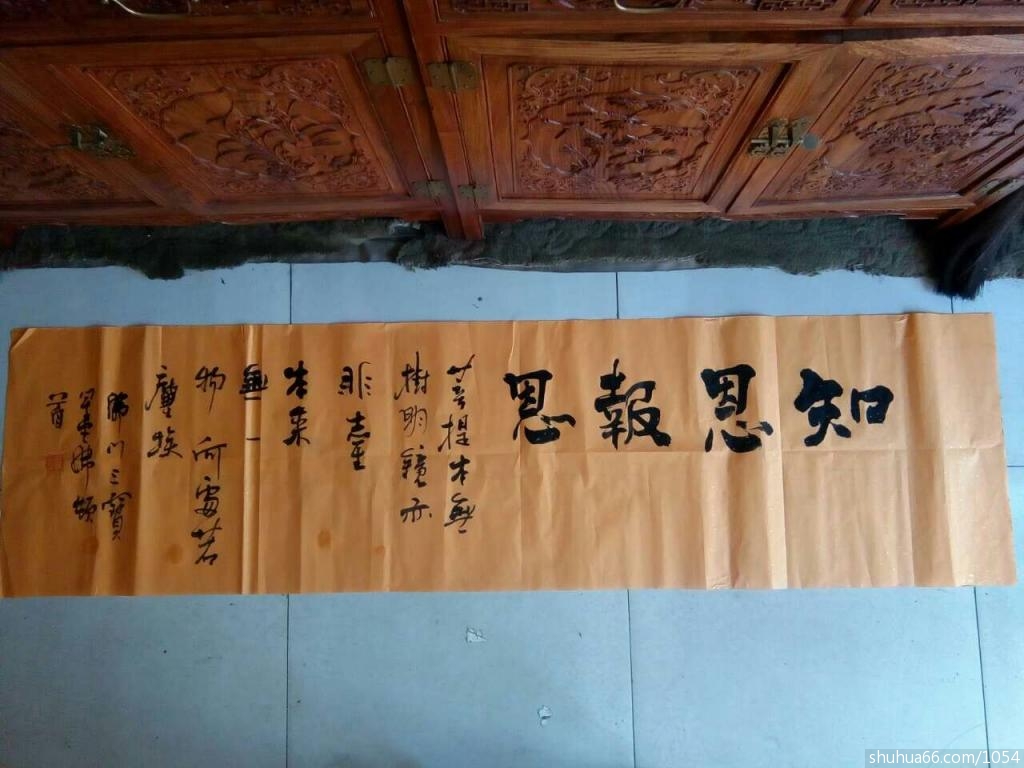 知恩報恩
菩提本無
樹明鏡亦
非臺
本來
無一
物何處若
塵埃
佛門三寶
星雲佛
首
shuhua66.com/1054